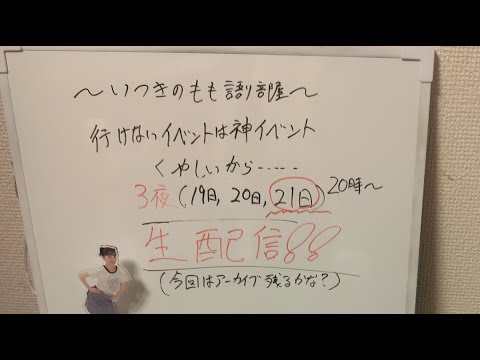 ～いつきのもも語り部屋～
行けないイベントは神イベント
くやしいから……
3夜(19日, 20日, 21日) 20時～
生配信!!
(今回はアーカイブ残るかな?)